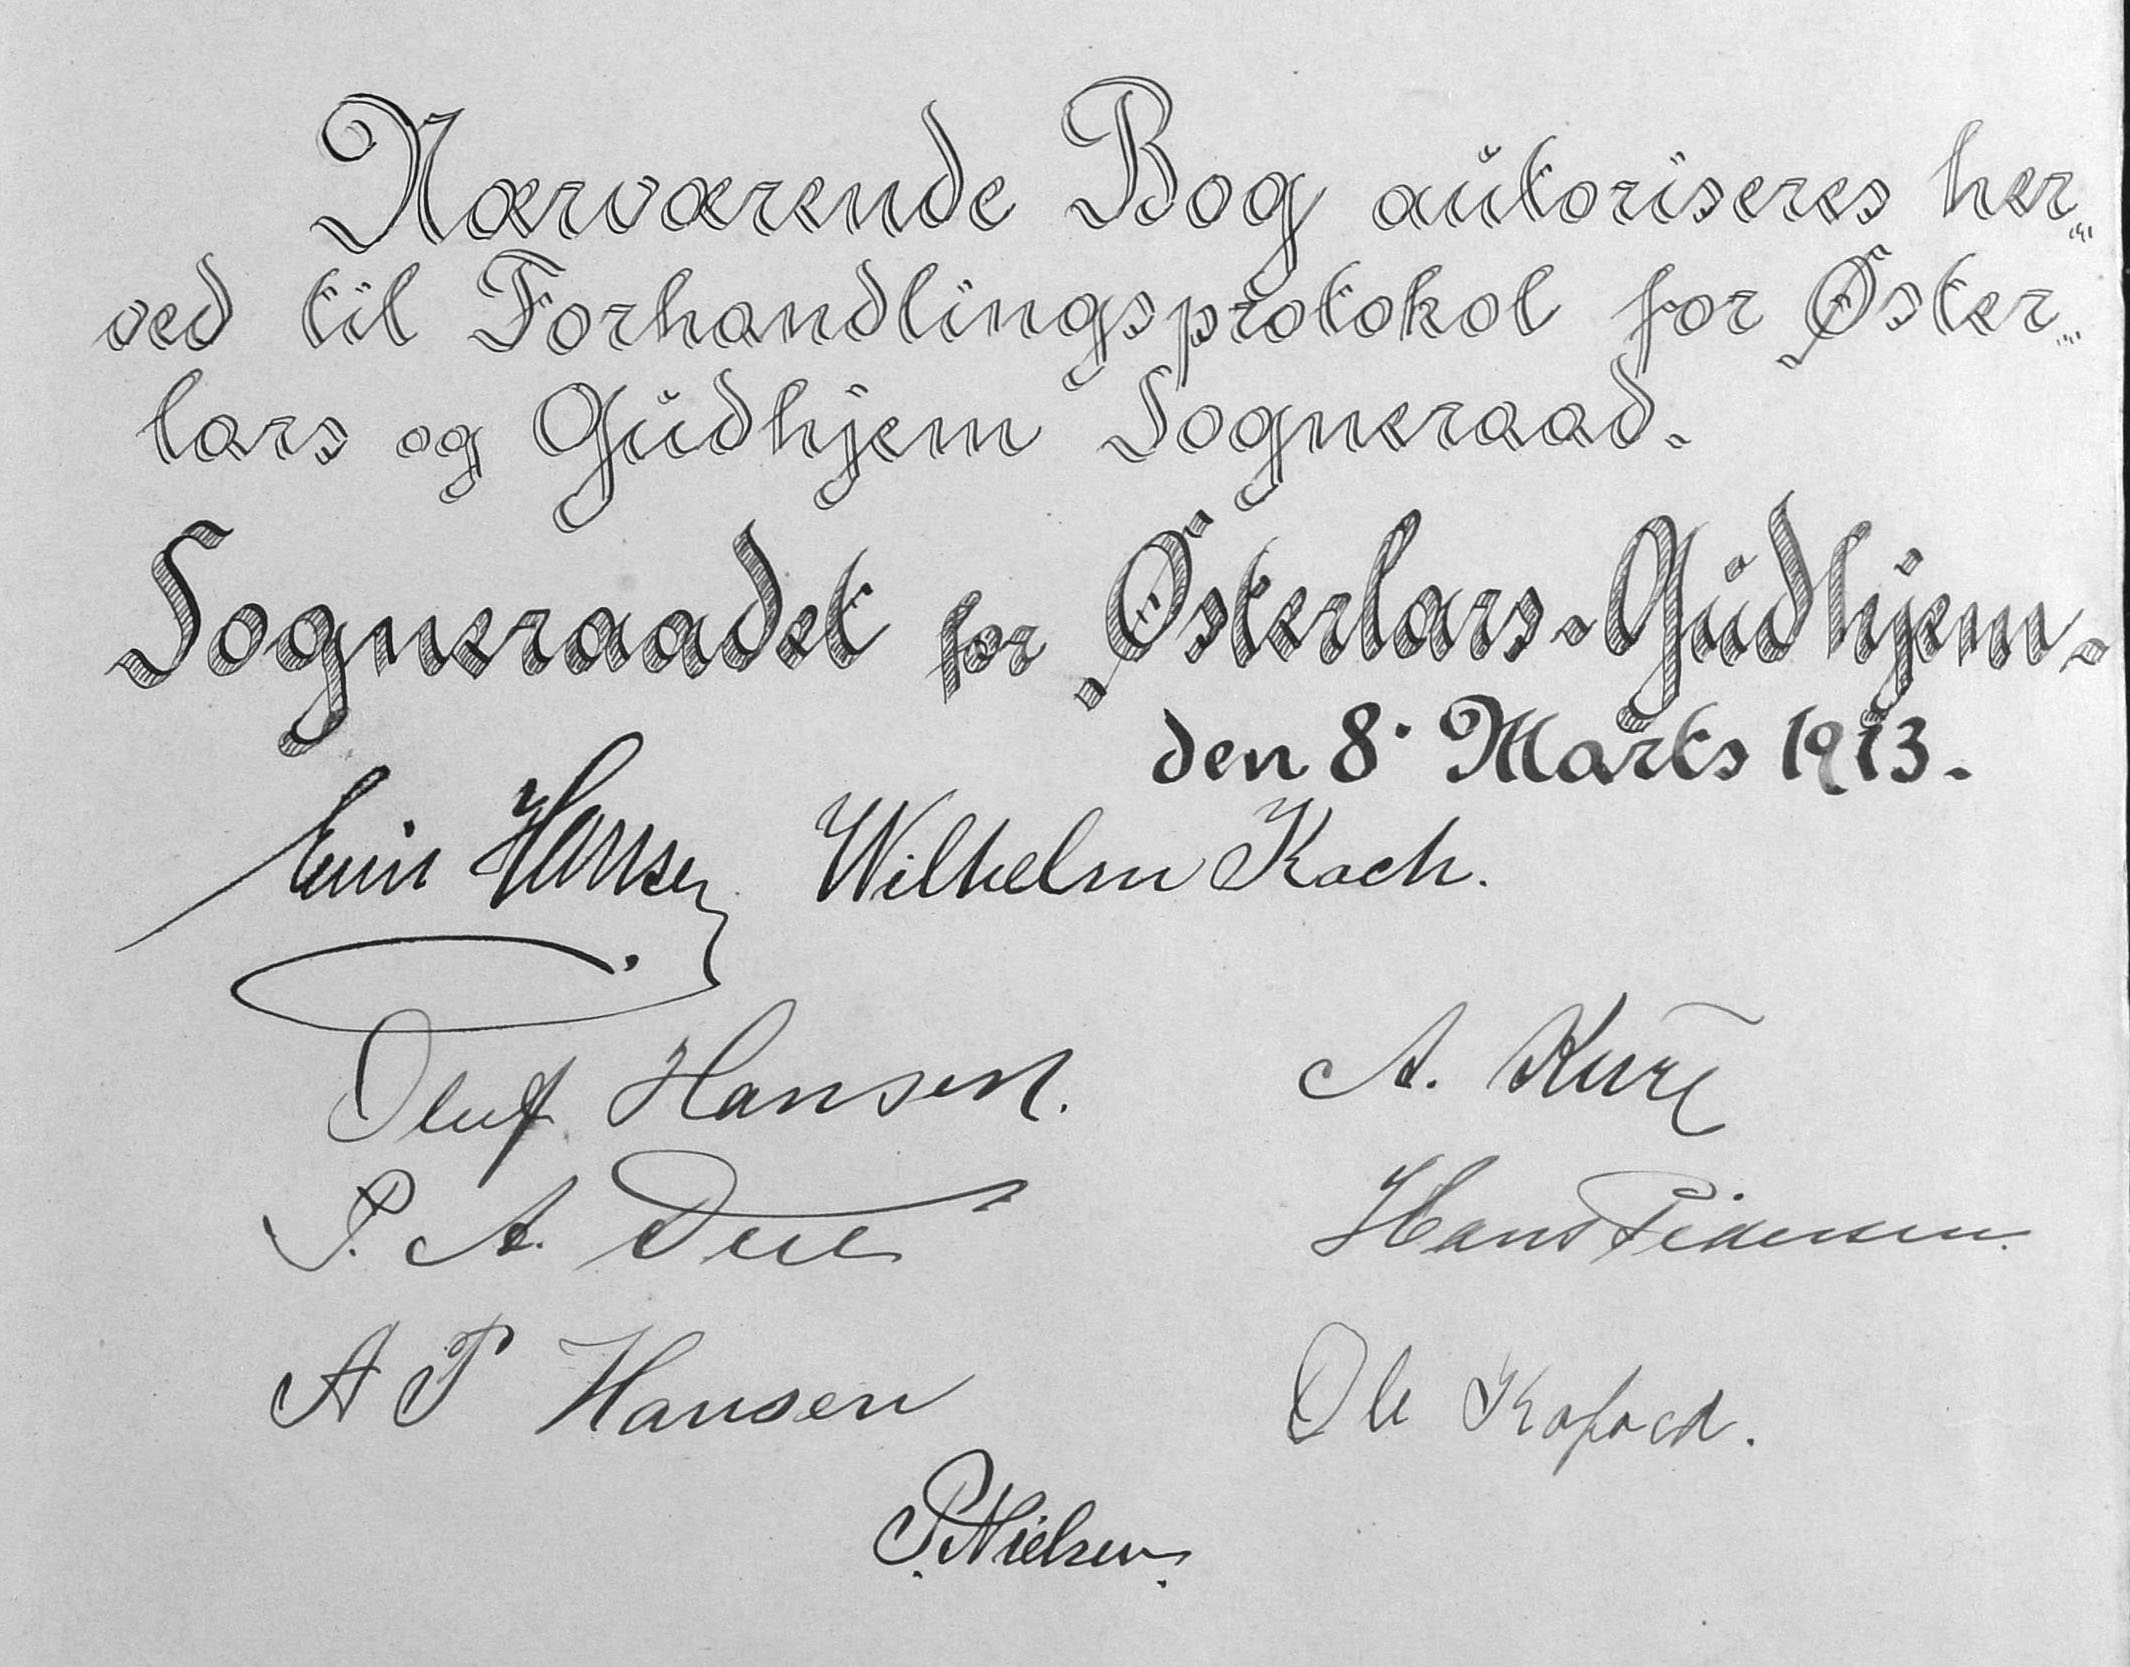 Nærværende Bog autoriseres her„
ved til Forhandlingsprotokol for Øster„
lars og Gudhjem Sogneraad.
Sogneraadet for Østerlars-Gudhjem-
den 8. Marts 1913.
Hansen Wilhelm Koch.
Oluf Hansen. A. Kure
P. A. Due Hans Pedersen.
A P Hansen Ole Kofoed.
P. Nielsen.